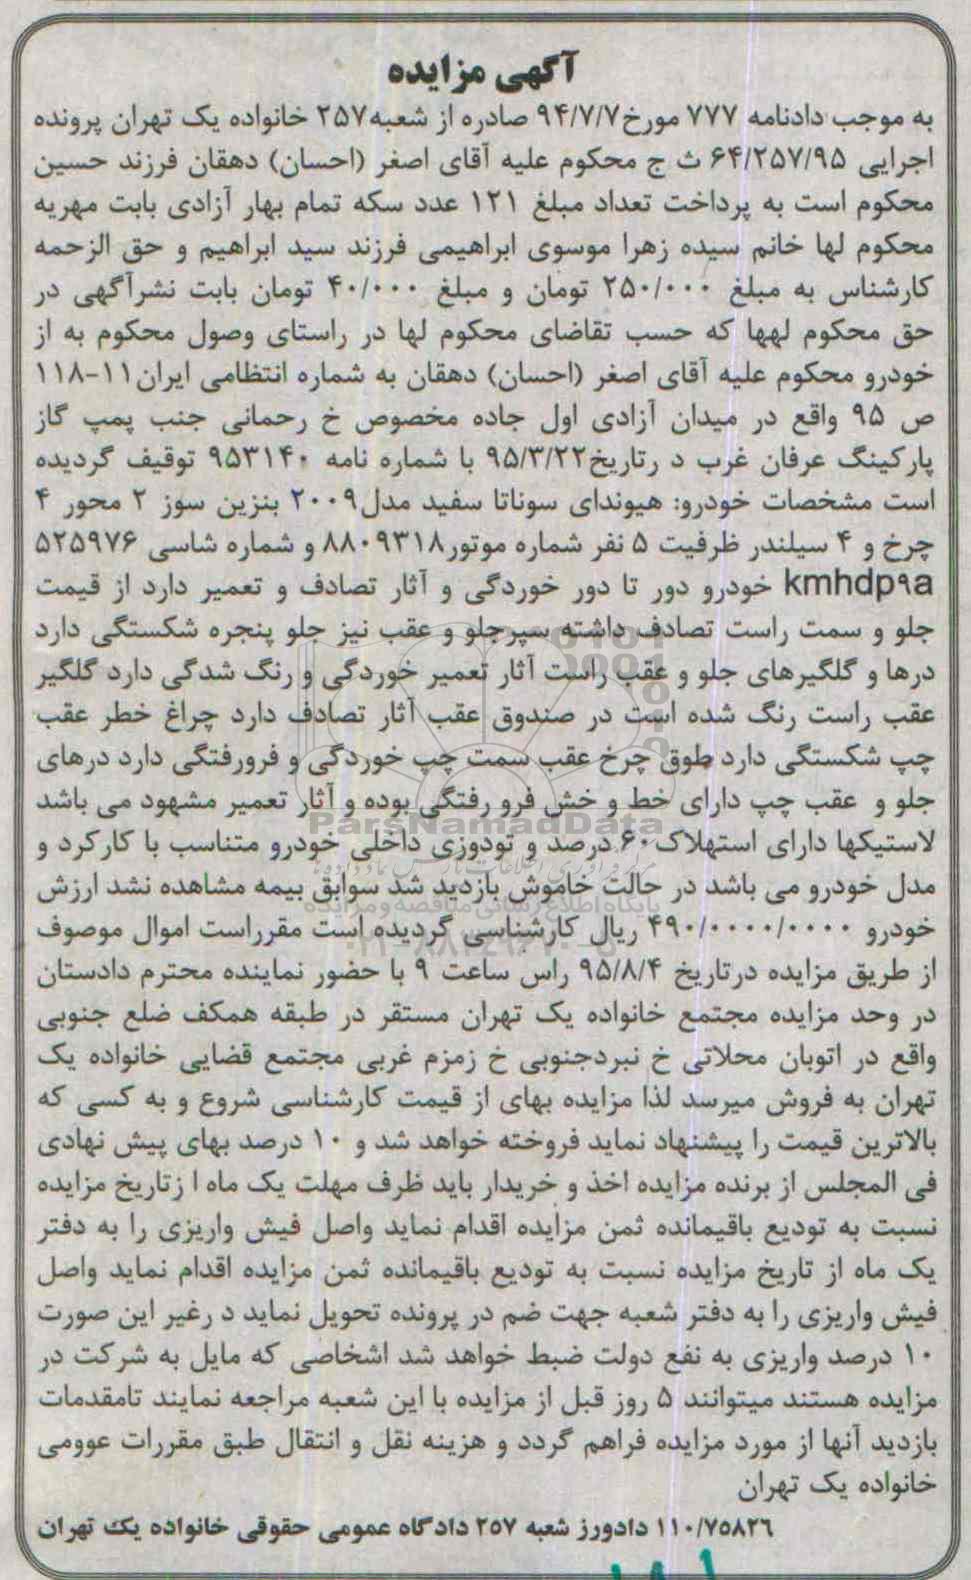 آگهی مزایده
به موجب دادنامه ۷۷۷ مورخ۹۴/۷/۷ صادره از شعبه۲۵۷ خانواده یک تهران پرونده
اجرایی ۶۴/۲۵۷/۹۵ ث ج محکوم علیه آقای اصغر (احسان) دهقان فرزند حسین
محکوم است به پرداخت تعداد مبلغ ۱۲۱ عدد سکه تمام بهار آزادی بابت مهریه
محکوم لها خانم سیده زهرا موسوی ابراهیمی فرزند سید ابراهیم و حق الزحمه
کارشناس به مبلغ ۲۵۰/۰۰۰ تومان و مبلغ ۴۰/۰۰۰ تومان بابت نشرآگهی در
حق محکوم لهها که حسب تقاضای محکوم لها در راستای وصول محکوم به از
خودرو محکوم علیه آقای اصغر (احسان) دهقان به شماره انتظامی ایران۱۱-۱۱۸
ص ۹۵ واقع در میدان آزادی اول جاده مخصوص خ رحمانی جنب پمپ گاز
پارکینگ عرفان غرب د رتاریخ۹۵/۳/۲۲ با شماره نامه ۹۵۳۱۴۰ توقیف گردیده
است مشخصات خودرو: هیوندای سوناتا سفید مدل۲۰۰۹ بنزین سوز ۲ محور ۴
چرخ و ۴ سیلندر ظرفیت ۵ نفر شماره موتور۸۸۰۹۳۱۸ و شماره شاسی ۵۲۵۹۷۶
kmhdp۹a خودرو دور تا دور خوردگی و آثار تصادف و تعمیر دارد از قیمت
جلو و سمت راست تصادف داشته سپرجلو و عقب نیز جلو پنجره شکستگی دارد
درها و گلگیرهای جلو و عقب راست آثار تعمیر خوردگی و رنگ شدگی دارد گلگیر
عقب راست رنگ شده است در صندوق عقب آثار تصادف دارد چراغ خطر عقب
چپ شکستگی دارد طوق چرخ عقب سمت چپ خوردگی و فرورفتگی دارد درهای
جلو و عقب چپ دارای خط و خش فرو رفتگی بوده و آثار تعمیر مشهود می باشد
ParsNamadData
لاستیکها دارای استهلاک۶۰ درصد و تودوزی داخلی خودرو متناسب با کارکرد و
مدل خودرو می باشد در حالت خاموش بازدید شد سوابق بیمه مشاهده نشد ارزش
پایگاه اطلاع رسانی مناقصه و مزایده
خودرو ۴۹۰/۰۰۰۰/۰۰۰۰ ریال کارشناسی گردیده است مقرراست اموال موصوف
از طریق مزایده درتاریخ ۹۵/۸/۴ راس ساعت ۹ با حضور نماینده محترم دادستان
در وحد مزایده مجتمع خانواده یک تهران مستقر در طبقه همکف ضلع جنوبی
واقع در اتوبان محلاتی خ نبردجنوبی خ زمزم غربی مجتمع قضایی خانواده یک
تهران به فروش میرسد لذا مزایده بهای از قیمت کارشناسی شروع و به کسی که
بالاترین قیمت را پیشنهاد نماید فروخته خواهد شد و ۱۰ درصد بهای پیش نهادی
فی المجلس از برنده مزایده اخذ و خریدار باید ظرف مهلت یک ماه ا زتاریخ مزایده
نسبت به تودیع باقیمانده ثمن مزایده اقدام نماید واصل فیش واریزی را به دفتر
یک ماه از تاریخ مزایده نسبت به تودیع باقیمانده ثمن مزایده اقدام نماید واصل
فیش واریزی را به دفتر شعبه جهت ضم در پرونده تحویل نماید د رغیر این صورت
۱۰ درصد واریزی به نفع دولت ضبط خواهد شد اشخاصی که مایل به شرکت در
مزایده هستند میتوانند ۵ روز قبل از مزایده با این شعبه مراجعه نمایند تامقدمات
بازدید آنها از مورد مزایده فراهم گردد و هزینه نقل و انتقال طبق مقررات عوومی
خانواده یک تهران
۱۱۰/۷۵۸۲۶ دادورز شعبه ۲۵۷ دادگاه عمومی حقوقی خانواده یک تهران